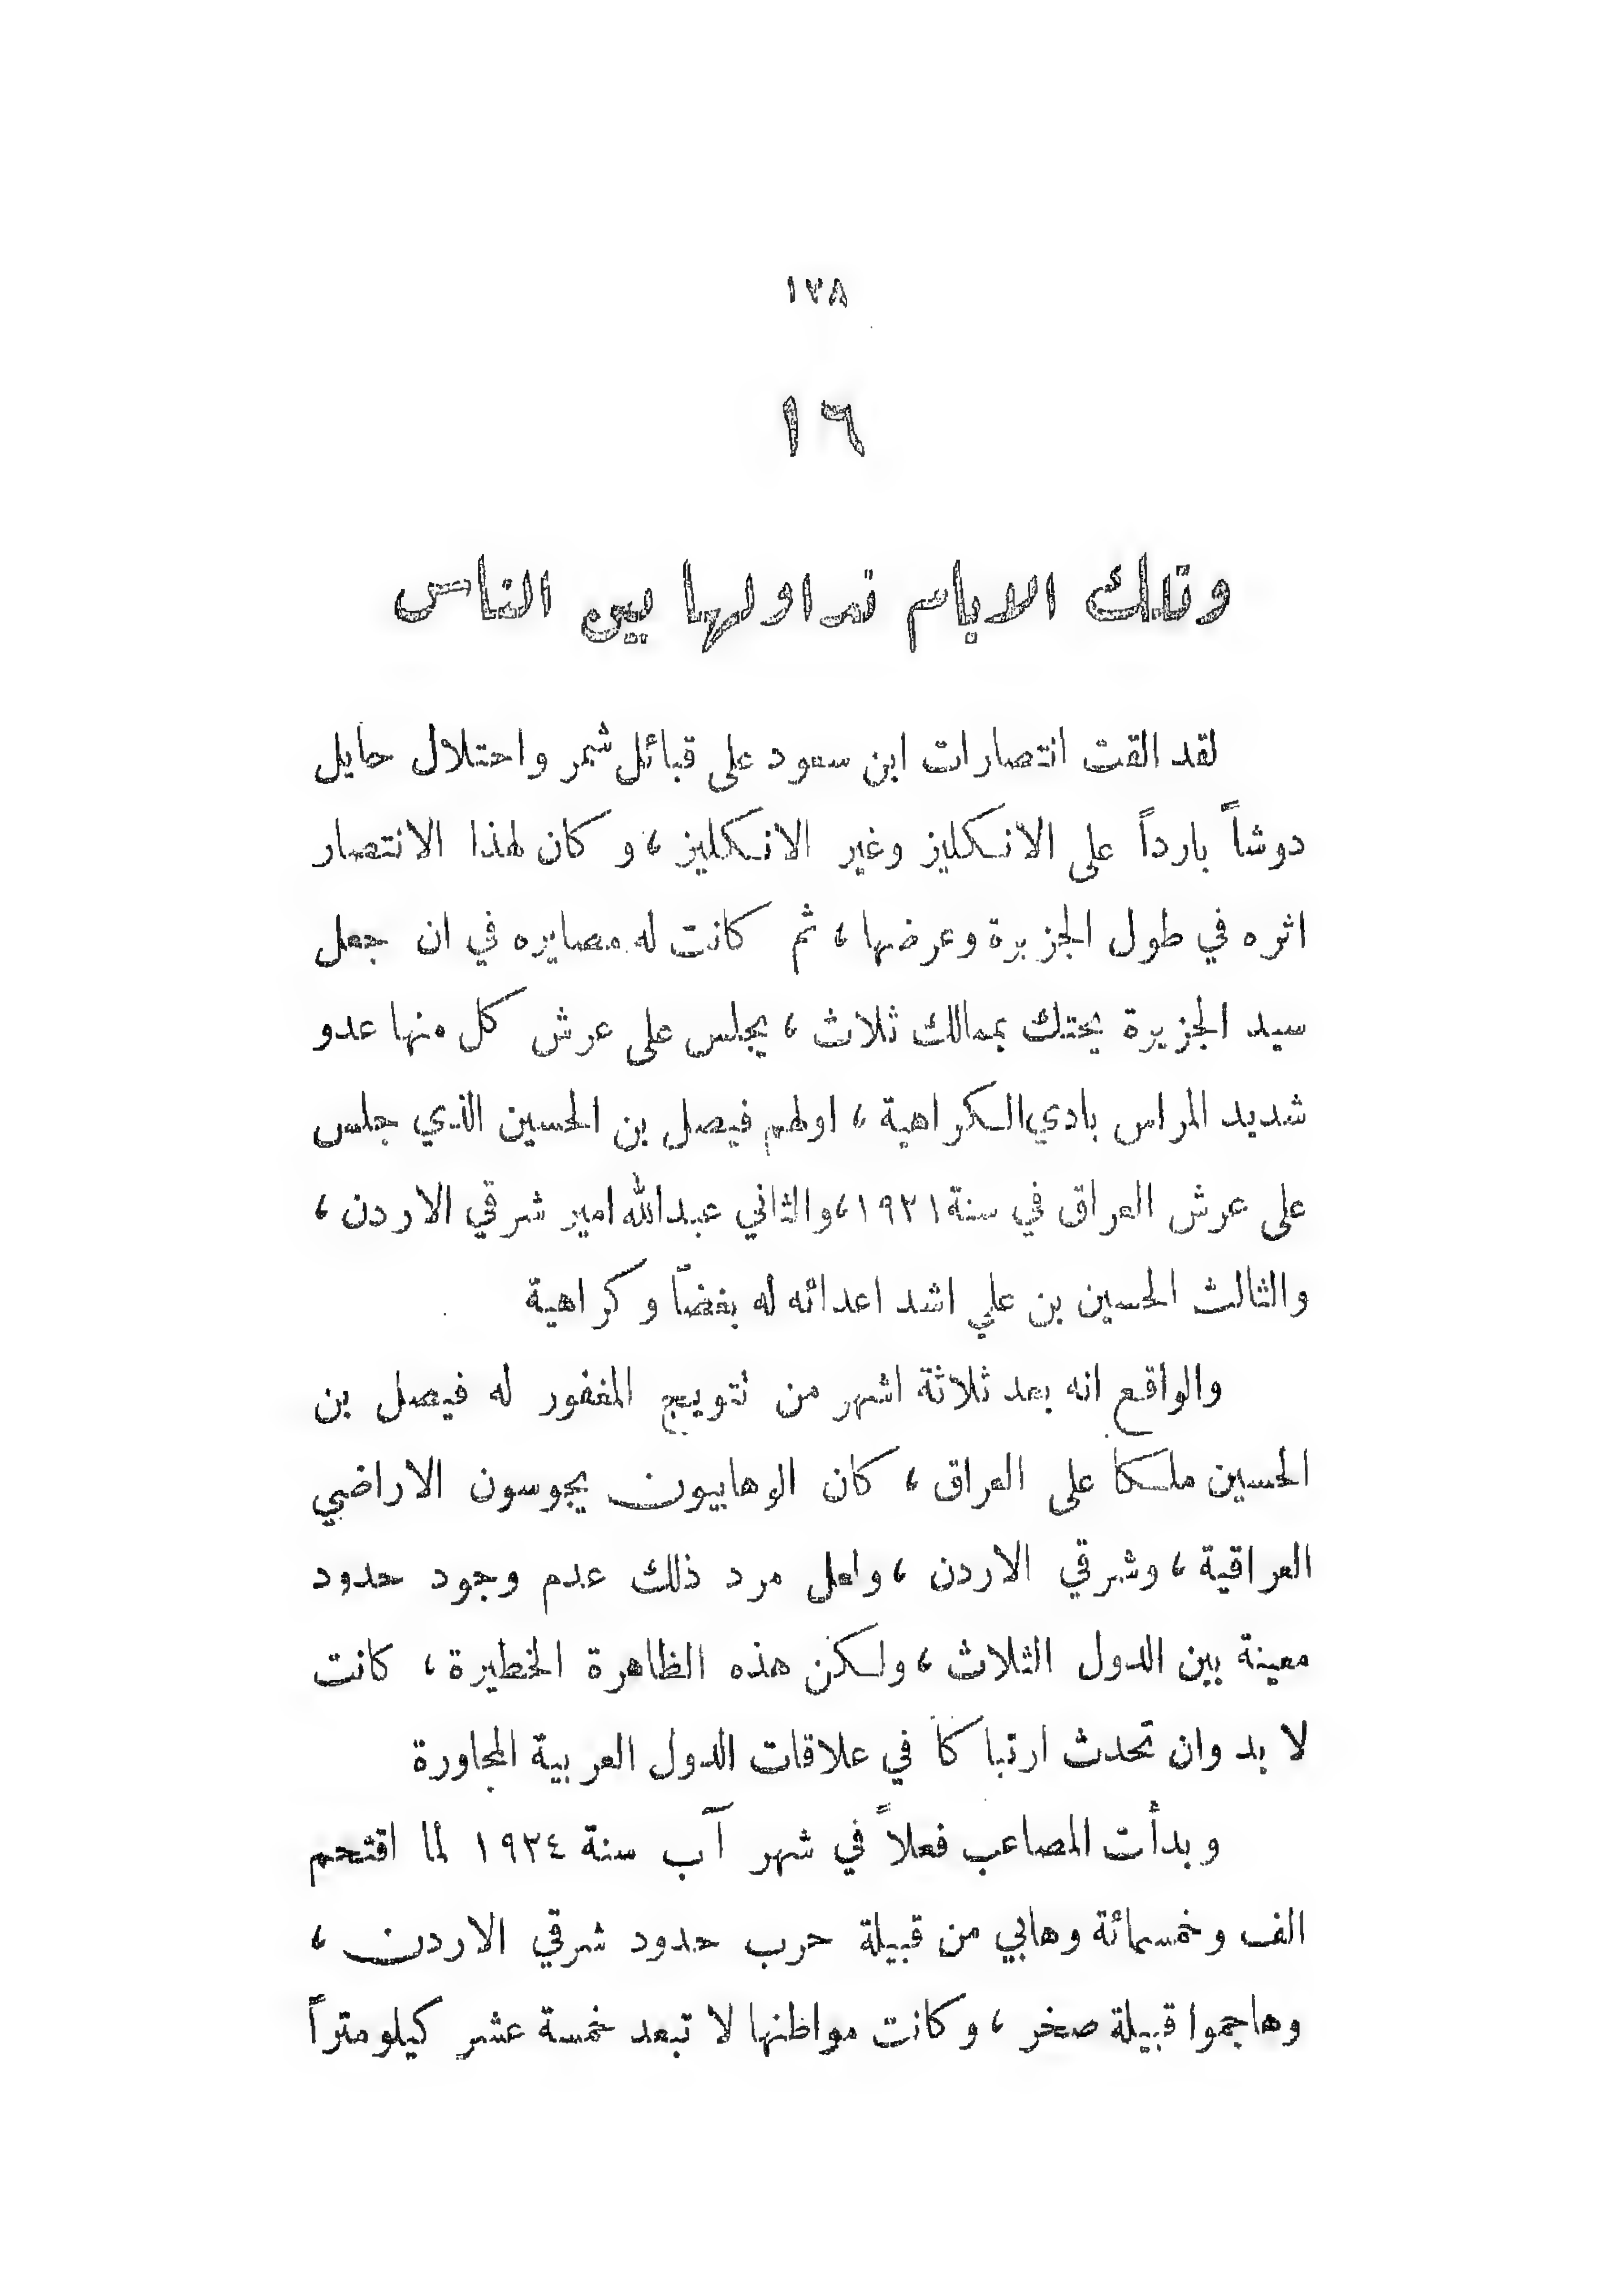 ١٧٨
١٦
وتلك الايام نداولها بين الناس
لقد القت انتصارات ابن سعود على قبائل شمر واحتلال حايل
دوشاً بارداً على الانكليز وغير الانكليز ، وكان لهذا الانتصار
اثره في طول الجزيرة وعرضها ، ثم كانت له مصايره في ان جعل
سيد الجزيرة يحتك بممالك ثلاث ، يجلس على عرش كل منها عدو
شديد المراس بادي الكراهية ، اولهم فيصل بن الحسين الذي جلس
على عرش العراق في سنة ١٩٢١، والثاني عبدالله امير شرقي الاردن ،
والثالث الحسين بن علي اشد اعدائه له بغضاً وكراهية
والواقع انه بعد ثلاثة اشهر من تتويج المغفور له فيصل بن
الحسين ملكاً على العراق ، كان الوهابيون يجوسون الاراضي
العراقية ، وشرقي الاردن ، ولعل مرد ذلك عدم وجود حدود
معينة بين الدول الثلاث ، ولكن هذه الظاهرة الخطيرة ، كانت
لا بد وان تحدث ارتباكاً في علاقات الدول العربية المجاورة
وبدأت المصاعب فعلاً في شهر آب سنة ١٩٢٤ لما اقتحم
الف وخمسمائة وهابي من قبيلة حرب حدود شرقي الاردن ،
وهاجموا قبيلة صخر ، وكانت مواطنها لا تبعد خمسة عشر كيلومتراً